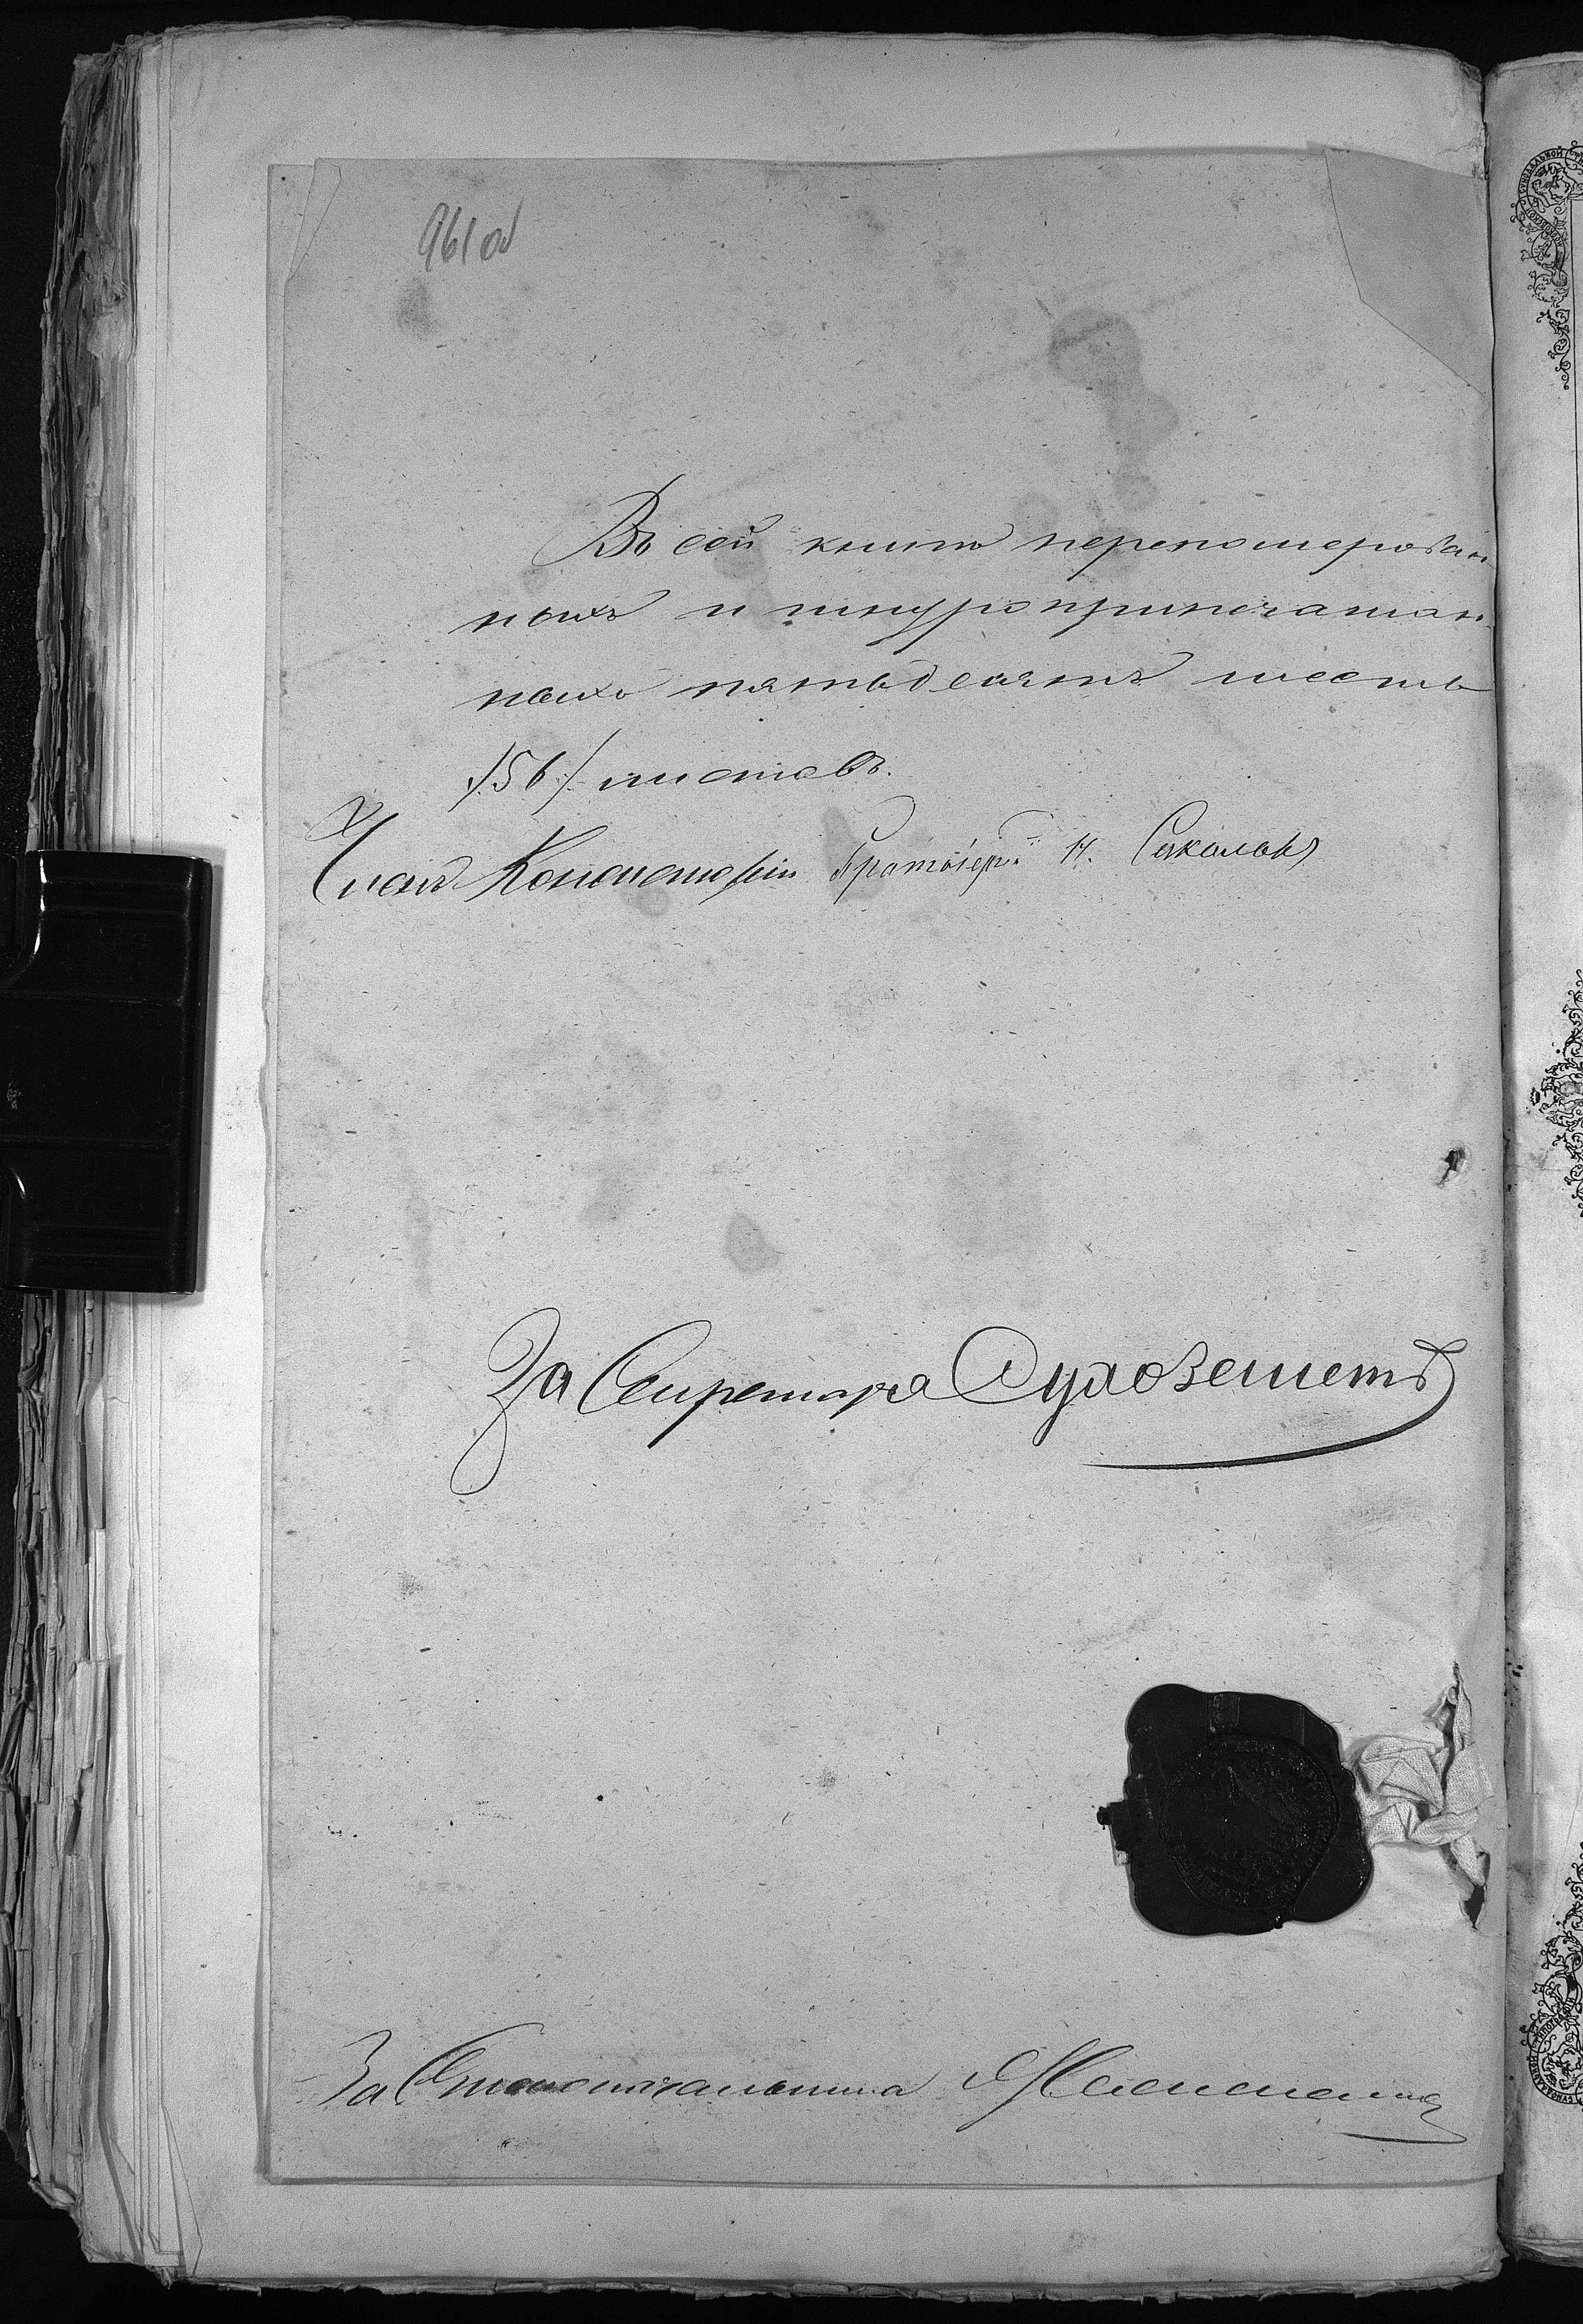 961 об
Въ сей книгѣ перенумерован-
ныхъ и шнуроприпечатан-
ныхъ пятьдесятъ шесть
/56/ листовъ.
Членъ Консисторіи Протоіерей И. Соколовъ
За Секретаря
За Столоначальника